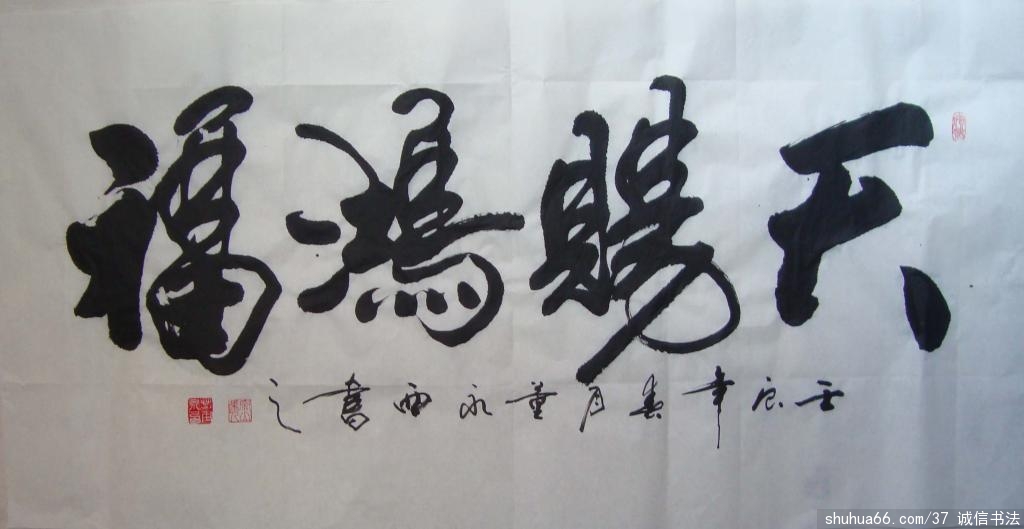 天赐鸿福
壬辰年春月董永西书之
shuhua66.com/37 诚信书法